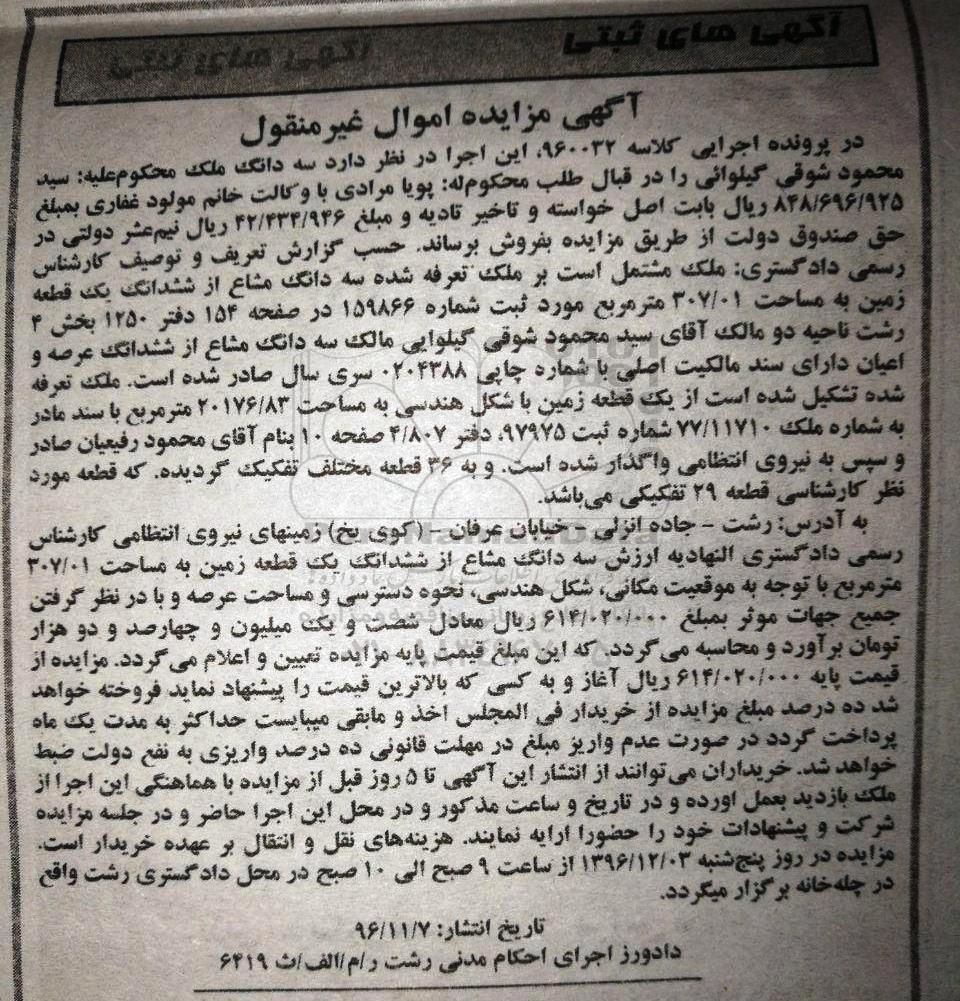 آگهی های ثبتی
آگهی مزایده اموال غیرمنقول
در پرونده اجرایی کلاسه ۹۶۰۰۳۲، این اجرا در نظر دارد سه دانگ ملک محکوم‌علیه: سید
محمود شوقی گیلوائی را در قبال طلب محکوم‌له: پویا مرادی با وکالت خانم مولود غفاری بمبلغ
۸۴۸/۶۹۶/۹۲۵ ریال بابت اصل خواسته و تاخیر تادیه و مبلغ ۴۲/۴۳۴/۹۴۶ ریال نیم‌عشر دولتی در
حق صندوق دولت از طریق مزایده بفروش برساند. حسب گزارش تعریف و توصیف کارشناس
رسمی دادگستری: ملک مشتمل است بر ملک تعرفه شده سه دانگ مشاع از ششدانگ یک قطعه
زمین به مساحت ۳۰۷/۰۱ مترمربع مورد ثبت شماره ۱۵۹۸۶۶ در صفحه ۱۵۴ دفتر ۱۲۵۰ بخش ۴
رشت ناحیه دو مالک آقای سید محمود شوقی گیلوایی مالک سه دانگ مشاع از ششدانگ عرصه و
اعیان دارای سند مالکیت اصلی با شماره چاپی ۰۲۰۴۳۸۸ سری سال صادر شده است. ملک تعرفه
شده تشکیل شده است از یک قطعه زمین با شکل هندسی به مساحت ۲۰۱۷۶/۸۳ مترمربع با سند مادر
به شماره ملک ۷۷/۱۱۷۱۰ شماره ثبت ۹۷۹۷۵، دفتر ۴/۸۰۷ صفحه ۱۰ بنام آقای محمود رفیعیان صادر
و سپس به نیروی انتظامی واگذار شده است. و به ۳۶ قطعه مختلف تفکیک گردیده. که قطعه مورد
نظر کارشناسی قطعه ۲۹ تفکیکی می‌باشد.
به آدرس: رشت - جاده انزلی - خیابان عرفان - (کوی یخ) زمینهای نیروی انتظامی کارشناس
رسمی دادگستری النهادیه ارزش سه دانگ مشاع از ششدانگ یک قطعه زمین به مساحت ۳۰۷/۰۱
مترمربع با توجه به موقعیت مکانی، شکل هندسی، نحوه دسترسی و مساحت عرصه و با در نظر گرفتن
جمیع جهات موثر بمبلغ ۶۱۴/۰۲۰/۰۰۰ ریال معادل شصت و یک میلیون و چهارصد و دو هزار
تومان برآورد و محاسبه می‌گردد. که این مبلغ قیمت پایه مزایده تعیین و اعلام می‌گردد. مزایده از
قیمت پایه ۶۱۴/۰۲۰/۰۰۰ ریال آغاز و به کسی که بالاترین قیمت را پیشنهاد نماید فروخته خواهد
شد ده درصد مبلغ مزایده از خریدار فی المجلس اخذ و مابقی میبایست حداکثر به مدت یک ماه
پرداخت گردد در صورت عدم واریز مبلغ در مهلت قانونی ده درصد واریزی به نفع دولت ضبط
خواهد شد. خریداران می‌توانند از انتشار این آگهی تا ۵ روز قبل از مزایده با هماهنگی این اجرا از
ملک بازدید بعمل اورده و در تاریخ و ساعت مذکور و در محل این اجرا حاضر و در جلسه مزایده
شرکت و پیشنهادات خود را حضورا ارایه نمایند. هزینه‌های نقل و انتقال بر عهده خریدار است.
مزایده در روز پنج‌شنبه ۱۳۹۶/۱۲/۰۳ از ساعت ۹ صبح الی ۱۰ صبح در محل دادگستری رشت واقع
در چله‌خانه برگزار میگردد.
تاریخ انتشار: ۹۶/۱۱/۷
دادورز اجرای احکام مدنی رشت ر/م/الف/ث ۶۴۱۹